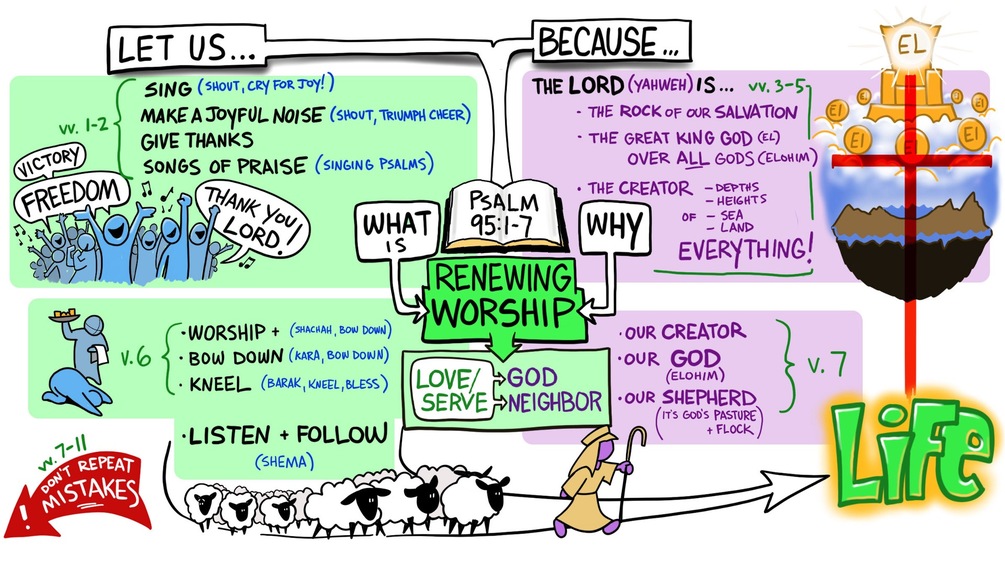 LET US...
BECAUSE...
vv. 1-2
SING (SHOUT, CRY FOR JOY!)
MAKE A JOYFUL NOISE (SHOUT, TRIUMPH CHEER)
GIVE THANKS
SONGS OF PRAISE (SINGING PSALMS)
VICTORY
FREEDOM
THANK YOU
LORD!
THE LORD (YAHWEH) IS... vv. 3-5
· THE ROCK OF OUR SALVATION
· THE GREAT KING GOD (EL)
OVER ALL GODS (ELOHIM)
· THE CREATOR – DEPTHS
– HEIGHTS
OF – SEA
– LAND
EVERYTHING!
EL
El
El
El
El
El
PSALM
95:1-7
WHAT
IS
WHY
RENEWING
WORSHIP
LOVE/
SERVE
GOD
NEIGHBOR
v. 6
· WORSHIP + (SHACHAH, BOW DOWN)
· BOW DOWN (KARA, BOW DOWN)
· KNEEL (BARAK, KNEEL, BLESS)
· LISTEN + FOLLOW
(SHEMA)
· OUR CREATOR
· OUR GOD
(ELOHIM)
· OUR SHEPHERD
(IT'S GOD'S PASTURE
+ FLOCK)
v. 7
vv. 7-11
DON'T REPEAT
MISTAKES
!
LIFE